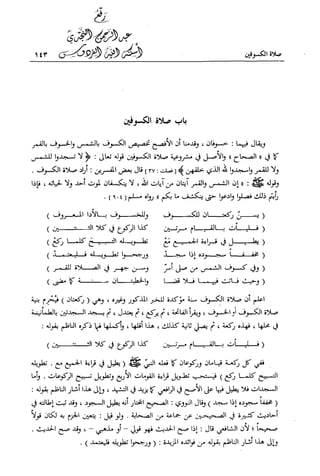 رقع
عبد الرحمن النجدي
أسكنه الله الفردوس
صلاة الكسوفين
١٤٣
باب صلاة الكسوفين
ويقال فيهما : خسوفان ، وقدمنا أن الأفصح تخصيص الكسوف بالشمس والخسوف بالقمر
كما في « الصحاح » والأصل في مشروعية صلاة الكسوفين قوله تعالى : ﴿ لا تسجدوا للشمس
ولا للقمر واسجدوا لله الذي خلقهن ﴾ ( فصلت : ٣٧ ) قال بعض المفسرين : أراد صلاة الكسوف .
وقوله ﷺ : « إن الشمس والقمر آيتان من آيات الله ، لا ينكسفان لموت أحد ولا لحياته ، فإذا
رأيتم ذلك فصلوا وادعوا حتى ينكشف ما بكم » رواه مسلم ( ٩٠٤ ) .
( يسن ركعتان للكسوف وللخسوف بالأدا المعروف )
( فليأت بالقيام مرتين كذا الركوع في كلا الثنتين )
( يطيل في قراءة الجميع مع تطويله التسبيح كلما ركع )
( مخففاً سجوده إذا سجد ورجحوا تطويله فليعتمد )
( وفي كسوف الشمس من صلى أسر وسن جهر في الصلاة للقمر )
( وحيث فاتت فيهما فلا قضا والخطبتان سنة كما مضى )
اعلم أن صلاة الكسوف سنة مؤكدة للخبر المذكور وغيره ، وهي ( ركعتان ) فيحرم بنية
صلاة كسوف أو الخسوف ، ويقرأ الفاتحة ، ثم يركع ، ثم يعتدل ، ثم يسجد السجدتين بالطمأنينة
في محلها ، فهذه ركعة ، ثم يصلي ثانية كذلك ، هذا أقلها ، وأكملها فيما ذكره الناظم بقوله :
( فليأت بالقيام مرتين كذا الركوع في كلا الثنتين )
ففي كل ركعة قيامان وركوعان كما فعله النبي ﷺ ( يطيل في قراءة الجميع مع . تطويله
التسبيح كلما ركع ) فيستحب تطويل قراءة القومات الأربع وتطويل تسبيح الركوعات . وأما
السجدات فلا يطيل فيها على الأصح في الرافعي كما لا يزيد في التشهد ، وإلى هذا أشار الناظم بقوله :
( مخففاً سجوده إذا سجد ) وقال النووي : الصحيح المختار أنه يطيل السجود ، وقد ثبت إطالته في
أحاديث كثيرة في الصحيحين عن جماعة من الصحابة . ولو قيل : يتعين الجزم به لكان قولاً
صحيحاً لأن الشافعي قال : إذا صح الحديث فهو قولي – أو مذهبي – ، وقد صح الحديث .
وإلى هذا أشار الناظم بقوله من فوائده المزيدة : ( ورجحوا تطويله فليعتمد ) .